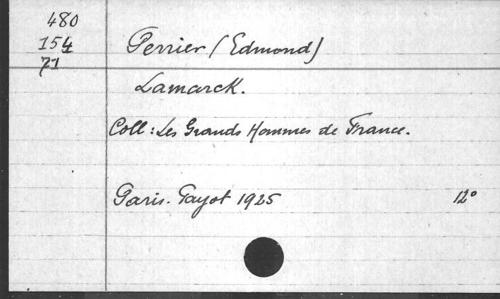 480
154
71
Perrier (Edmond)
Lamarck.
Coll: Les Grands Hommes de France.
Paris. Payot 1925 12°